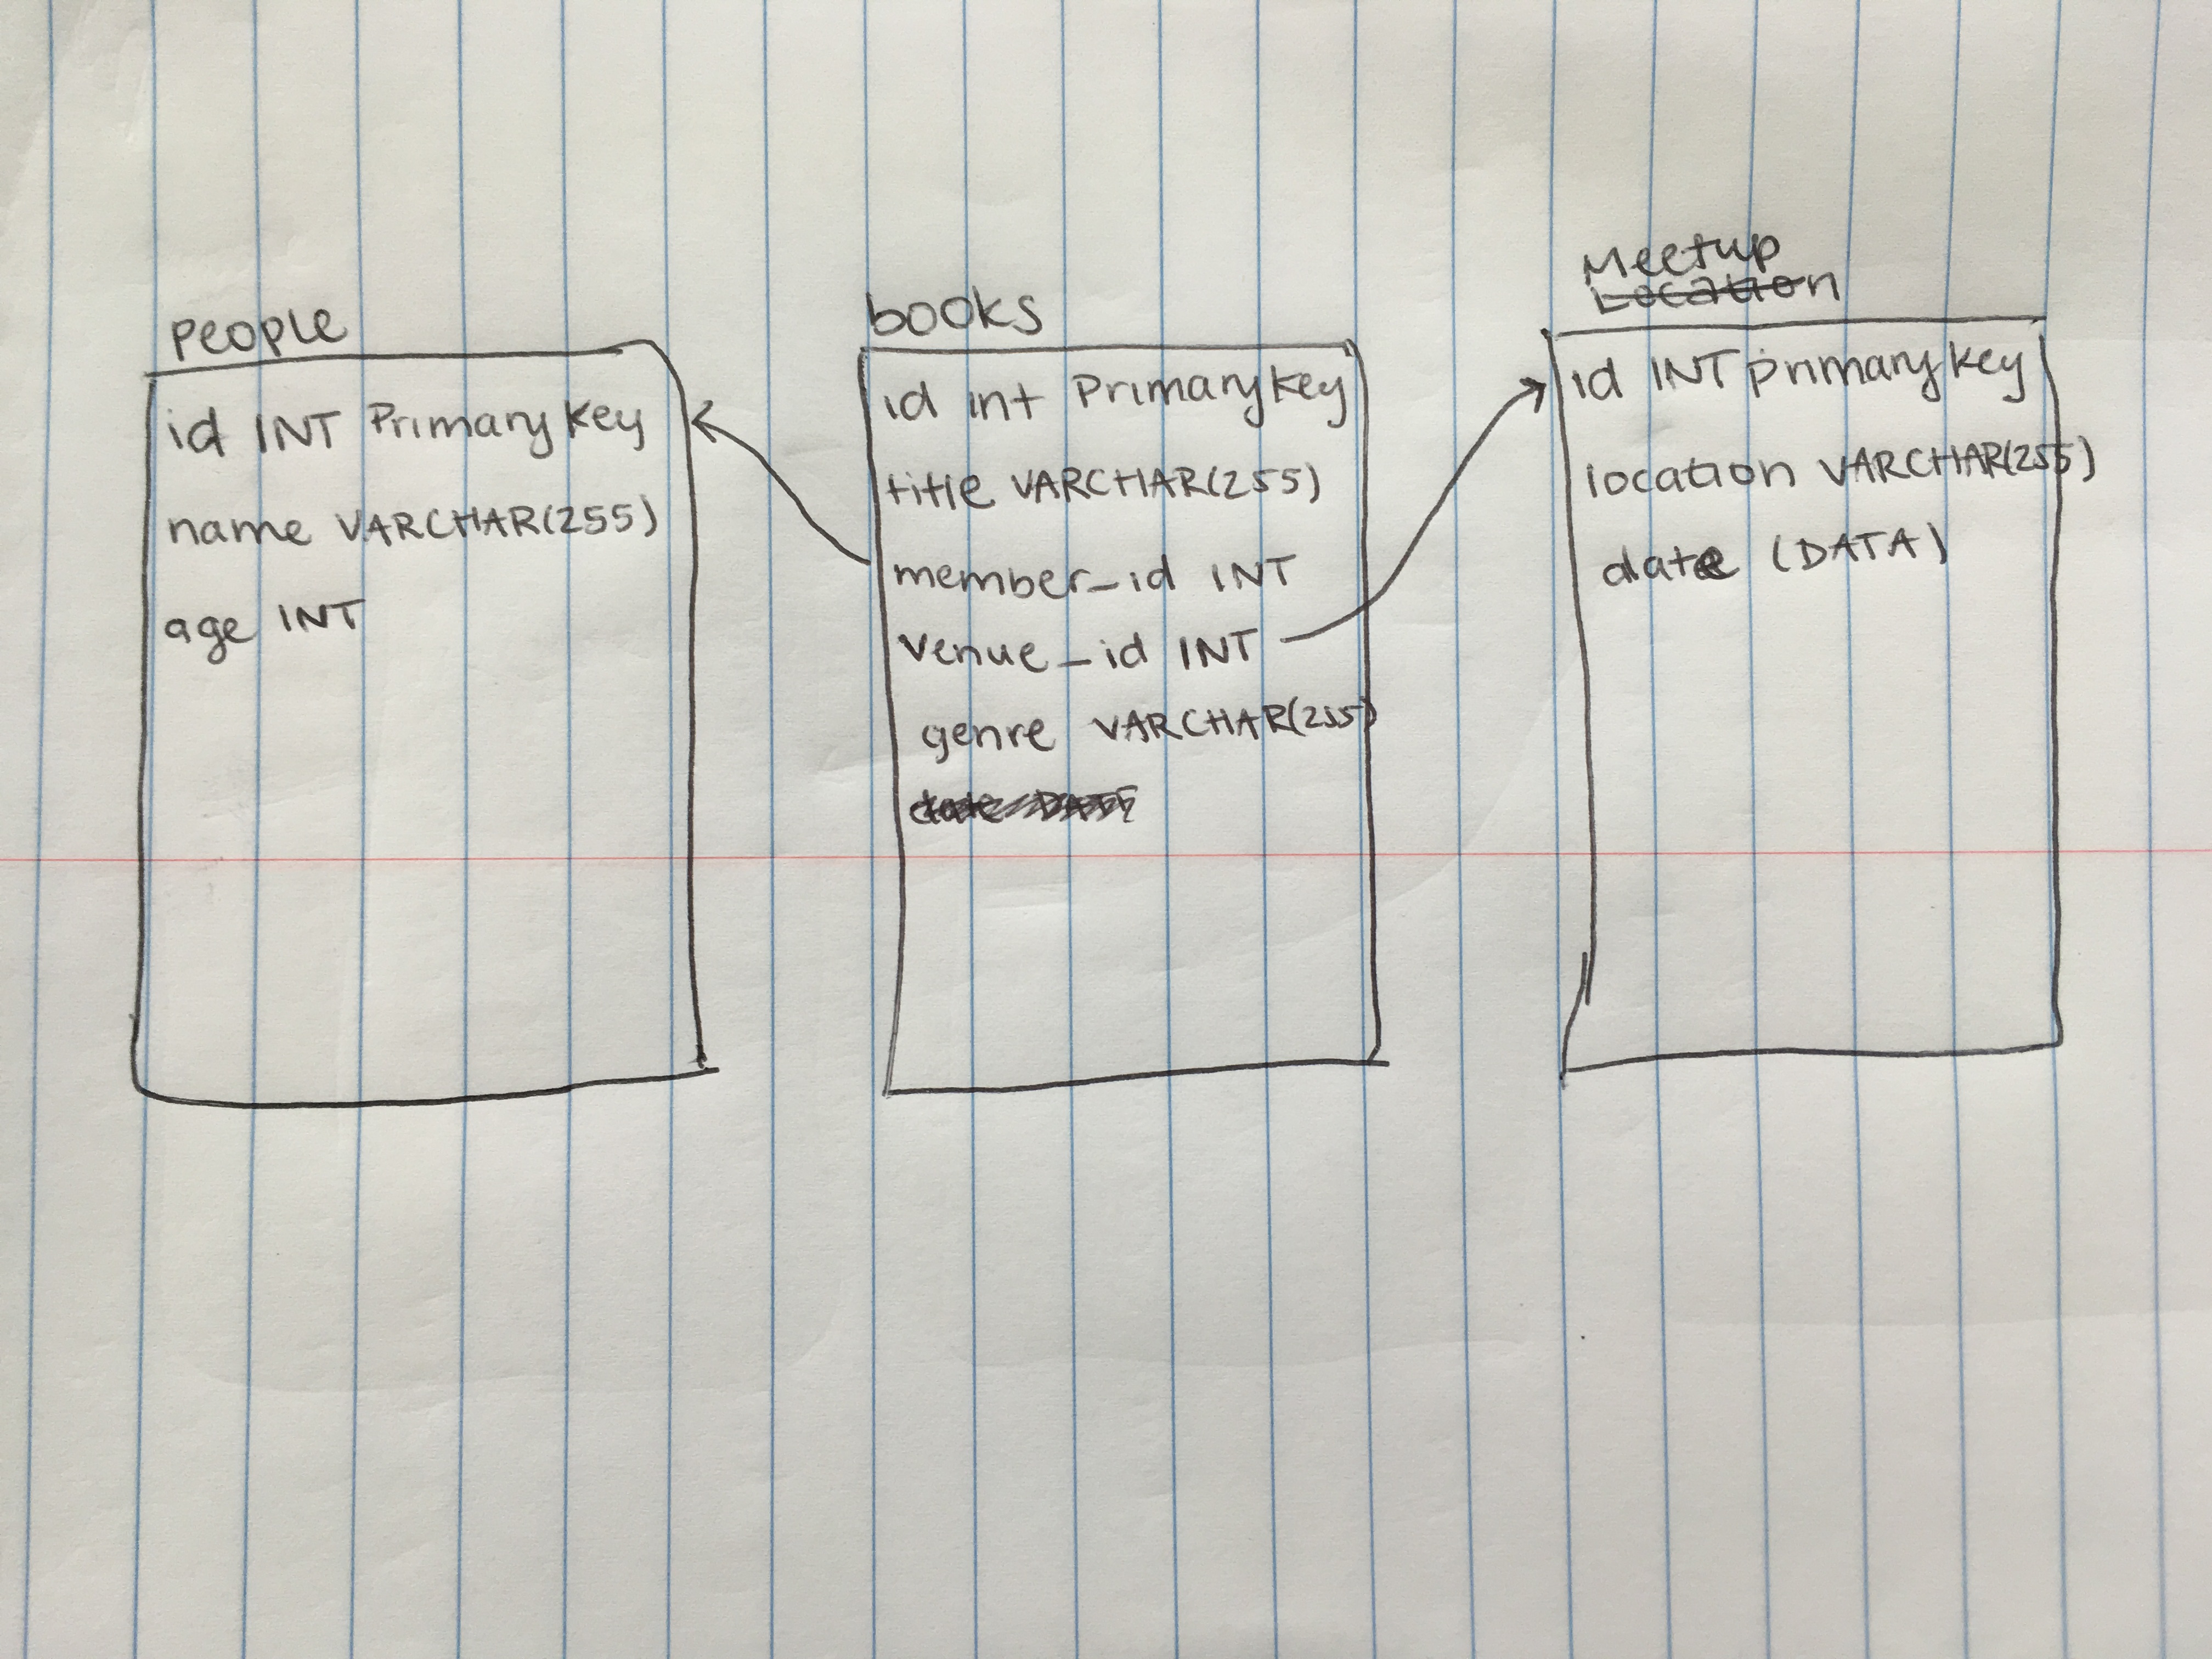 people
id INT Primary Key
name VARCHAR(255)
age INT
books
id int primary key
title VARCHAR(255)
member_id INT
venue_id INT
genre VARCHAR(255)
Meetup
Location
id INT primary key
location VARCHAR(255)
date (DATA)